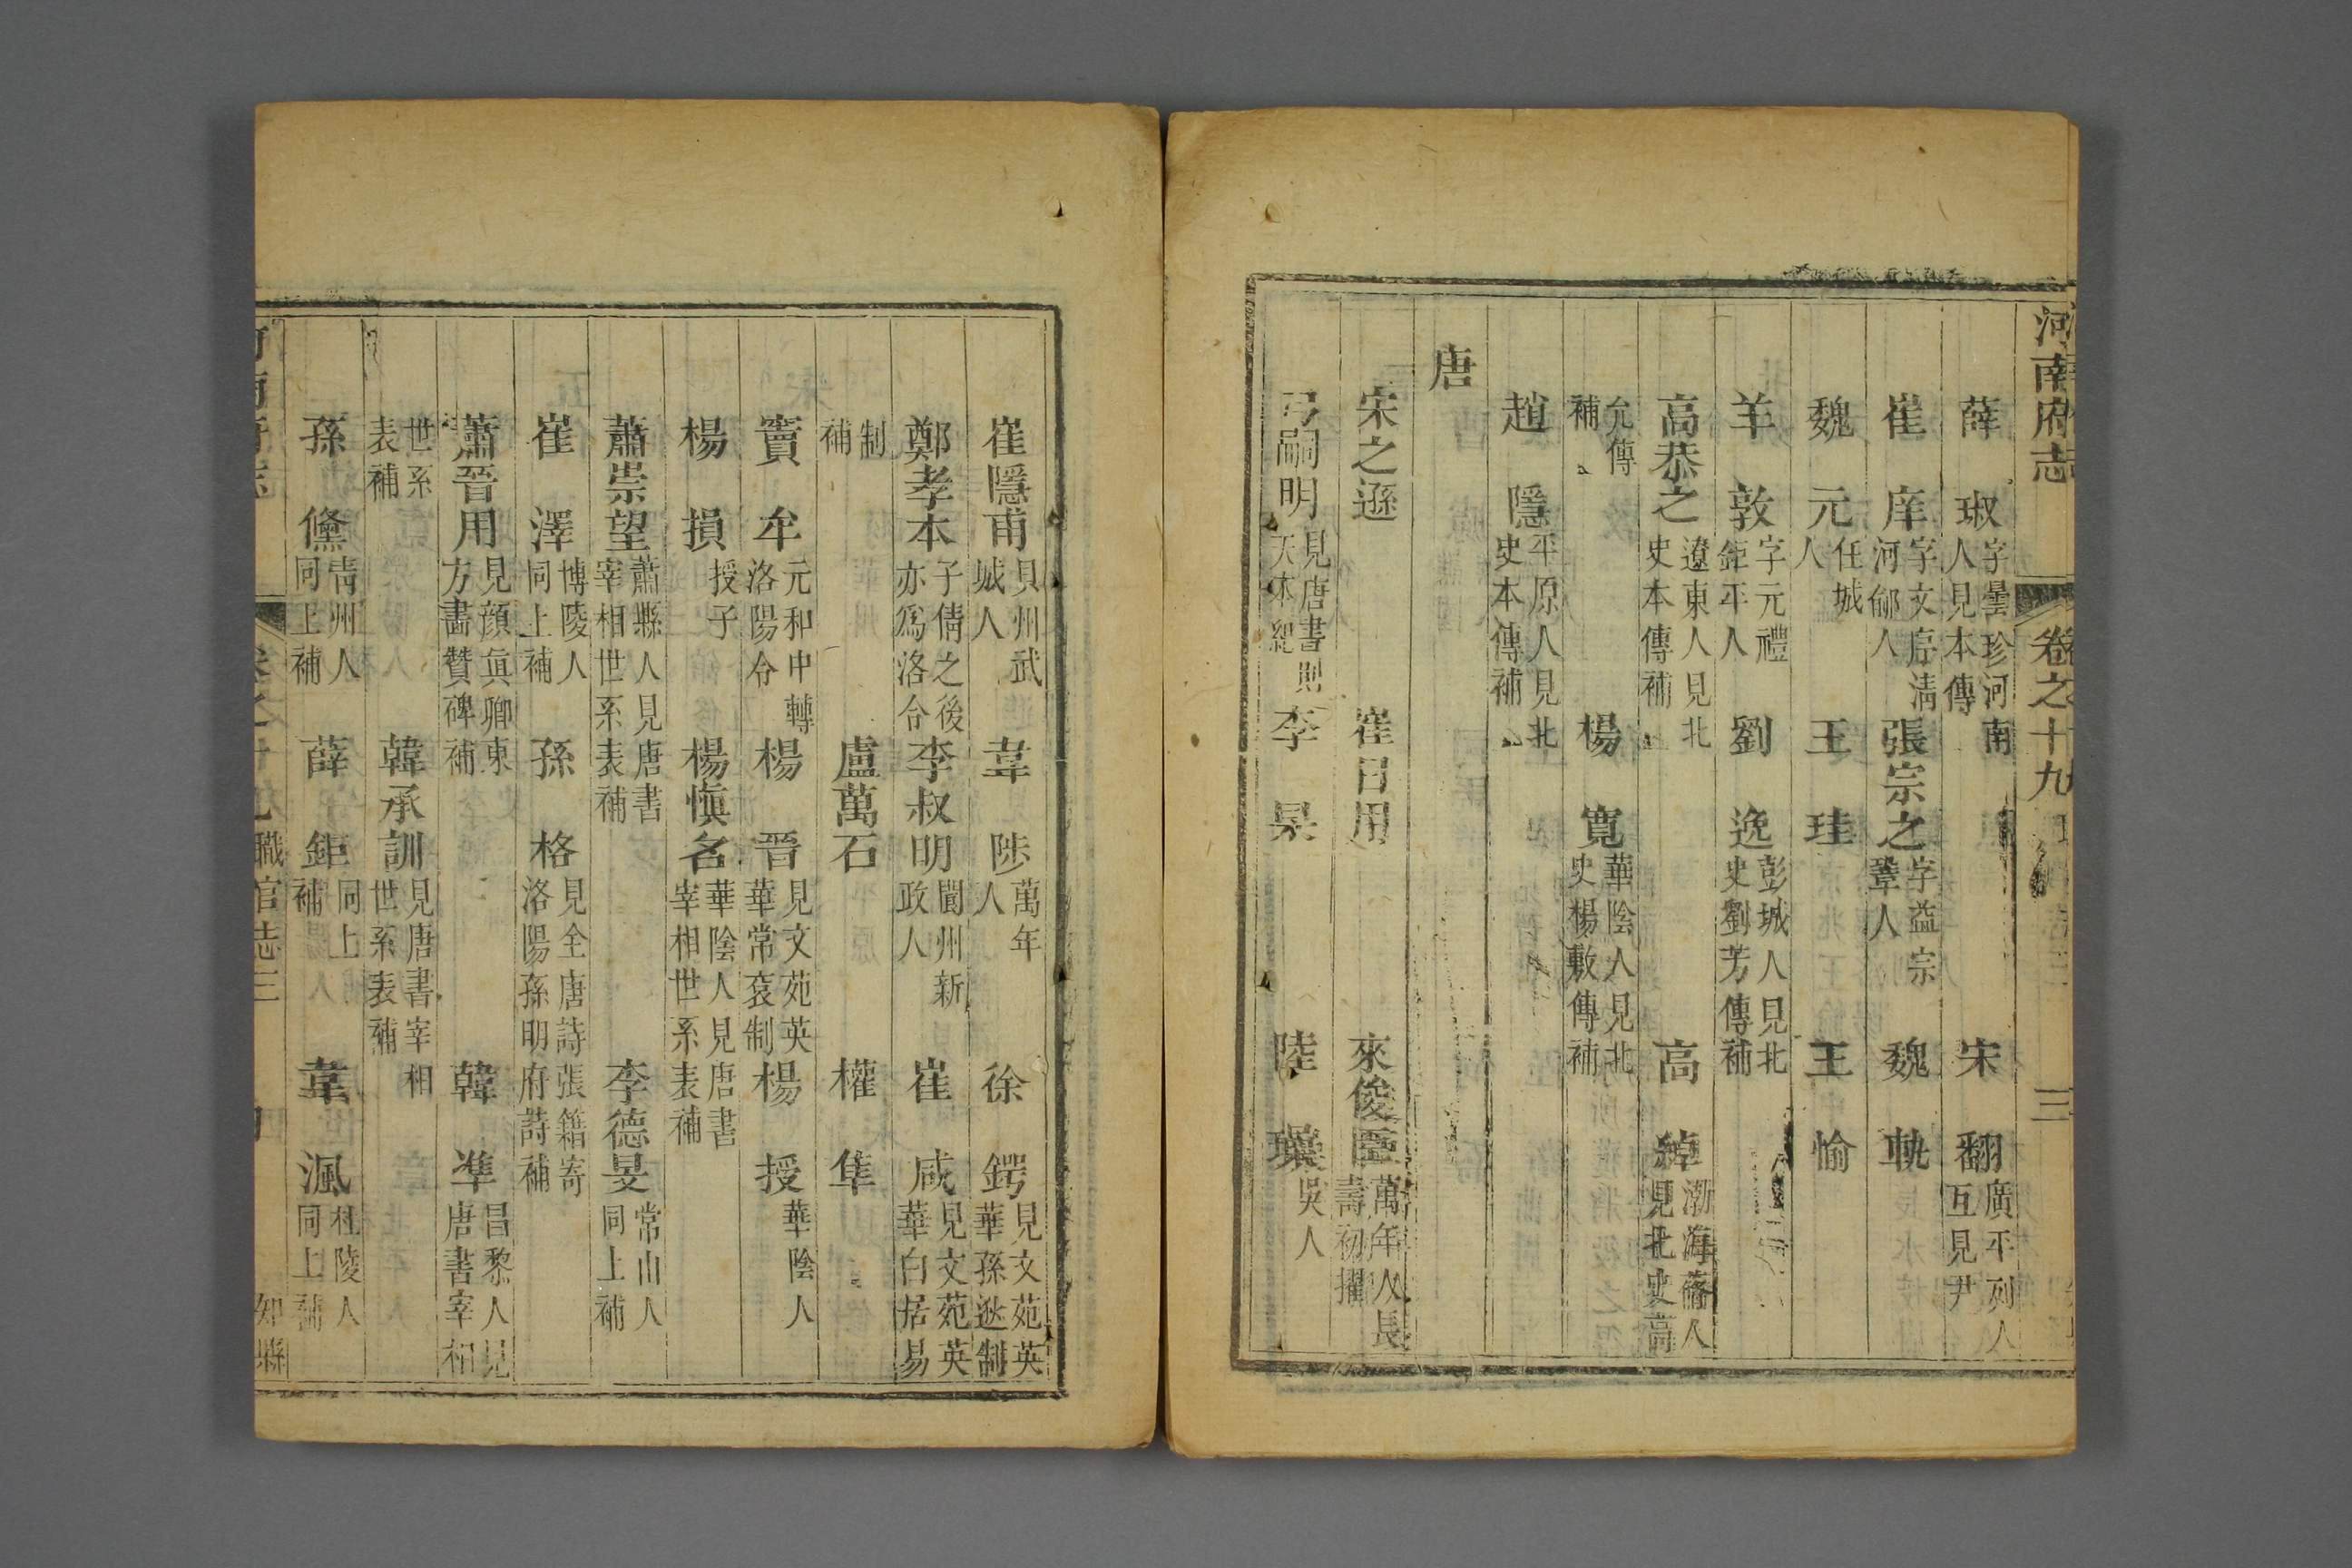 河南府志 卷之十九 三
薛琡字曇珍河南人見本傳 宋翻廣平列人互見尹
崔庠字文序淸河鄃人 張宗之字益宗鞏人 魏軌
魏元任城人 王珪 王愉
羊敦字元禮鉅平人 劉逸彭城人見北史劉芳傳補
高恭之遼東人見北史本傳補 高綽渤海蓨人見北史高
允傳補 楊寛華陰人見北史楊敷傳補
趙隱平原人見北史本傳補
唐
宋之遜 崔日用 來俊臣萬年人長壽初擢
弓嗣明見唐書則天本紀 李杲 陸璪吳人
崔隱甫貝州武城人 韋陟萬年人 徐鍔見文苑英華孫逖制
鄭孝本子倩之後亦爲洛令 李叔明閬州新政人 崔咸見文苑英華白居易
制補 盧萬石 權隼
竇牟元和中轉洛陽令 楊晉見文苑英華常袞制 楊授華陰人
楊損授子 楊愼名華陰人見唐書宰相世系表補
蕭崇望蕭縣人見唐書宰相世系表補 李德旻常山人同上補
崔澤博陵人同上補 孫格見全唐詩張籍寄洛陽孫明府詩補
蕭晉用見顔眞卿東方畵贊碑補 韓準昌黎人見唐書宰相
世系表補 韓承訓見唐書宰相世系表補
孫儻靑州人同上補 薛鉅同上補 韋渢杜陵人同上補
河南府志 卷之十九 職官志三 知縣